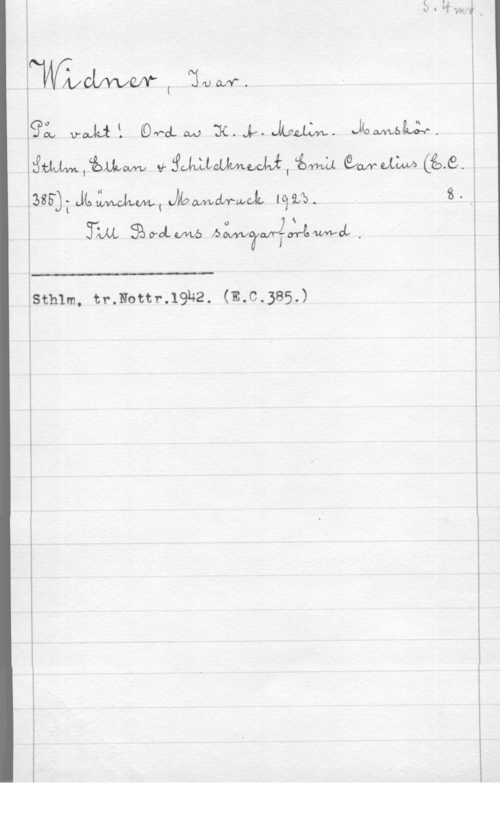 S. 4 mr.
Widner, Ivar.
På vakt! Ord av K. A. Melin. Manskör.
Sthlm, Elkan & Schildknecht, Emil Carelius (E.C.
385); München, Mandruck 1923. 8.
Till Bodens sångarförbund.
Sthlm, tr.Nottr.1942. (E.C.385.)